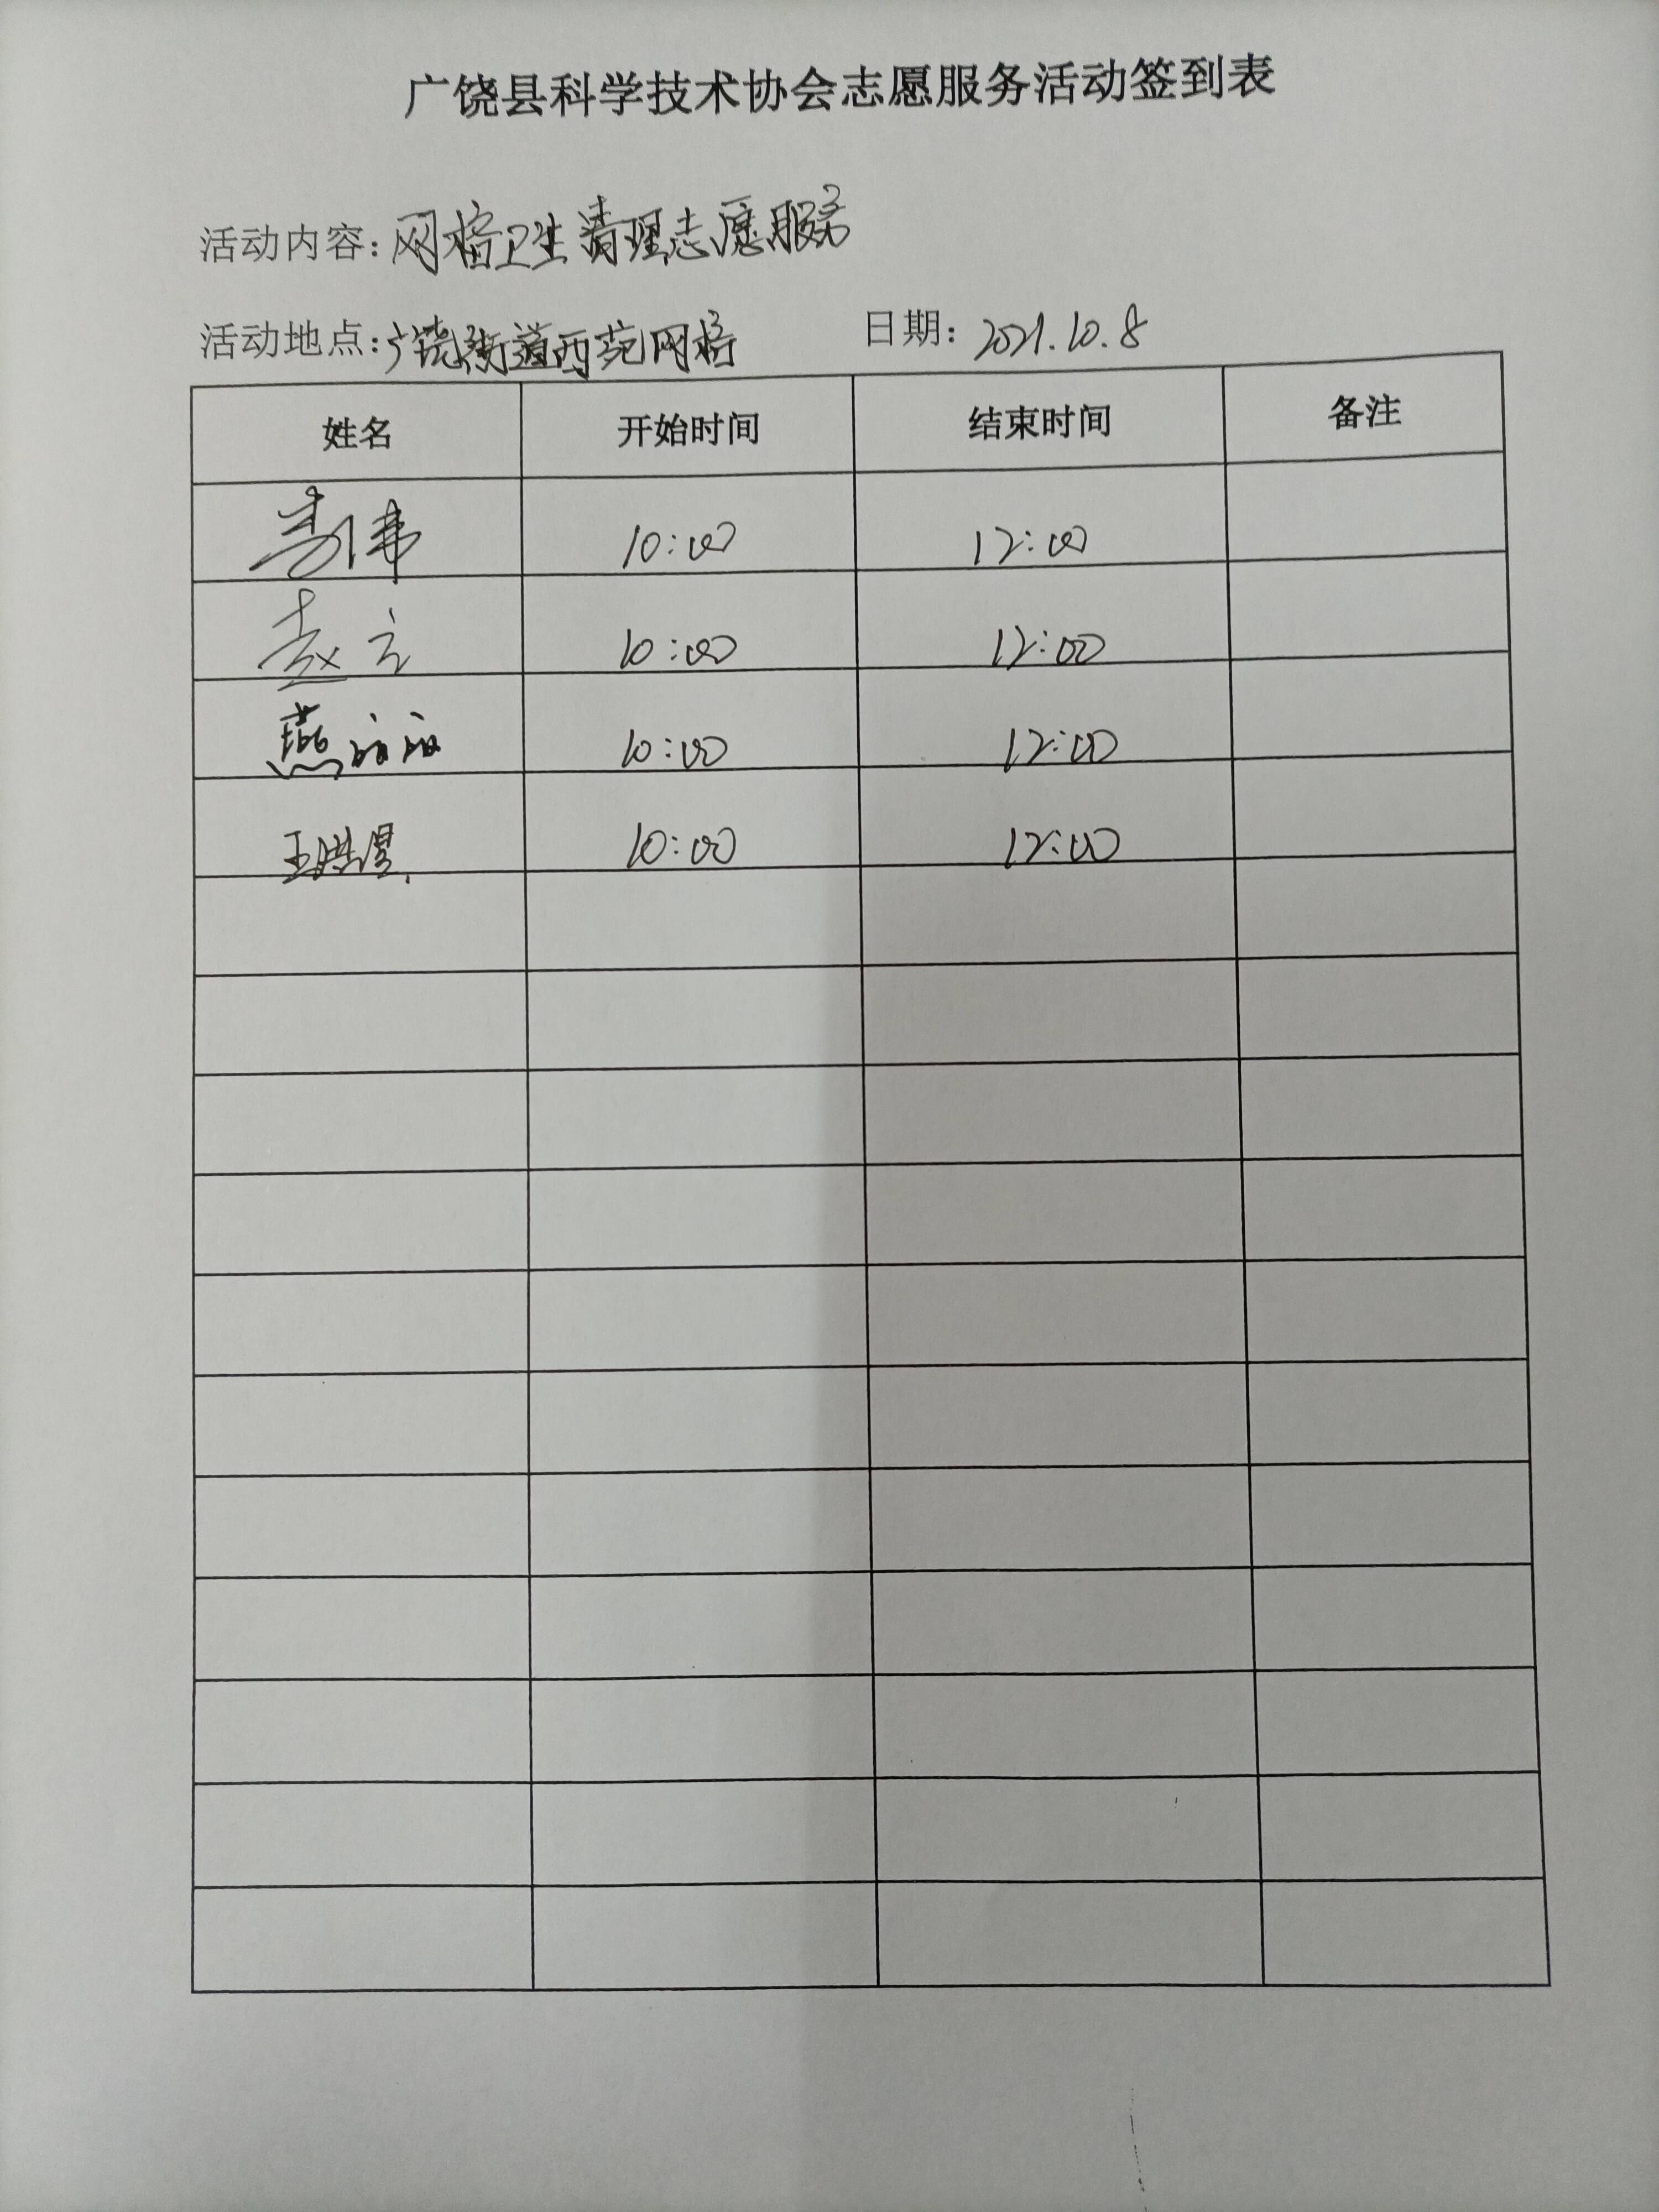 广饶县科学技术协会志愿服务活动签到表
活动内容：网格卫生清理志愿服务
活动地点：广饶街道西苑网格 日期：2021.10.8
姓名 开始时间 结束时间 备注
10:00 12:00
赵立 10:00 12:00
燕丽丽 10:00 12:00
王洪星 10:00 12:00